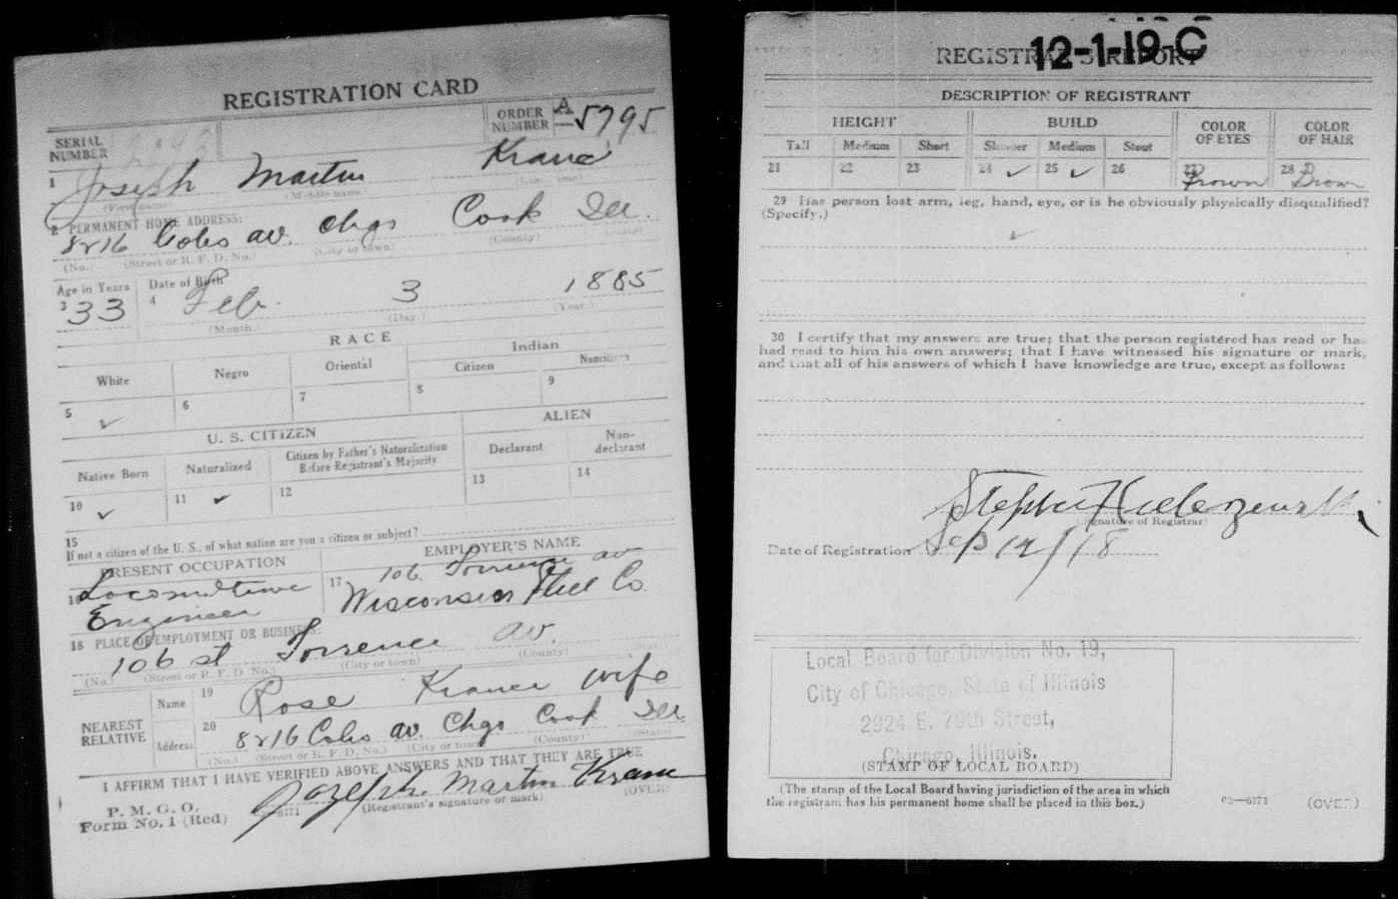 REGISTRATION CARD
SERIAL NUMBER
ORDER NUMBER A 5795
1 Joseph Martin Kranc
(First name) (Middle name) (Last name)
2 PERMANENT HOME ADDRESS:
8216 Coles av. Chgo Cook Ill.
(No.) (Street or R. F. D. No.) (City or town) (County) (State)
Age in Years Date of Birth
3 33 4 Feb. 3 1885
(Month.) (Day.) (Year.)
RACE
White Negro Oriental Indian
Citizen Noncitizen
5 ✓ 6 7 8 9
U. S. CITIZEN ALIEN
Native Born Naturalized Citizen by Father's Naturalization Before Registrant's Majority Declarant Non-declarant
10 ✓ 11 ✓ 12 13 14
15
If not a citizen of the U. S., of what nation are you a citizen or subject?
PRESENT OCCUPATION EMPLOYER'S NAME
16 Locomotive Engineer 17 106 Torrence av
Wisconsin Steel Co.
18 PLACE OF EMPLOYMENT OR BUSINESS:
106 st Torrence av.
(No.) (Street or R. F. D. No.) (City or town) (County) (State)
NEAREST RELATIVE
Name 19 Rose Kranc wife
Address 20 8216 Coles av. Chgo Cook Ill.
(No.) (Street or R. F. D. No.) (City or town) (County) (State)
I AFFIRM THAT I HAVE VERIFIED ABOVE ANSWERS AND THAT THEY ARE TRUE
P. M. G. O.
Form No. 1 (Red)
Joseph Martin Kranc
(Registrant's signature or mark) (OVER)
REGISTRAR'S REPORT
12-1-19-C
DESCRIPTION OF REGISTRANT
HEIGHT BUILD COLOR OF EYES COLOR OF HAIR
Tall Medium Short Slender Medium Stout
21 22 23 24 ✓ 25 ✓ 26 27 Brown 28 Brown
29 Has person lost arm, leg, hand, eye, or is he obviously physically disqualified?
(Specify.)
30 I certify that my answers are true; that the person registered has read or has
had read to him his own answers; that I have witnessed his signature or mark,
and that all of his answers of which I have knowledge are true, except as follows:
Stephen
(Signature of Registrar)
Date of Registration Sep 12/18
Local Board for Division No. 19,
City of Chicago, State of Illinois
2924 E. 79th Street,
Chicago, Illinois.
(STAMP OF LOCAL BOARD)
(The stamp of the Local Board having jurisdiction of the area in which
the registrant has his permanent home shall be placed in this box.)
03—6171 (OVER)